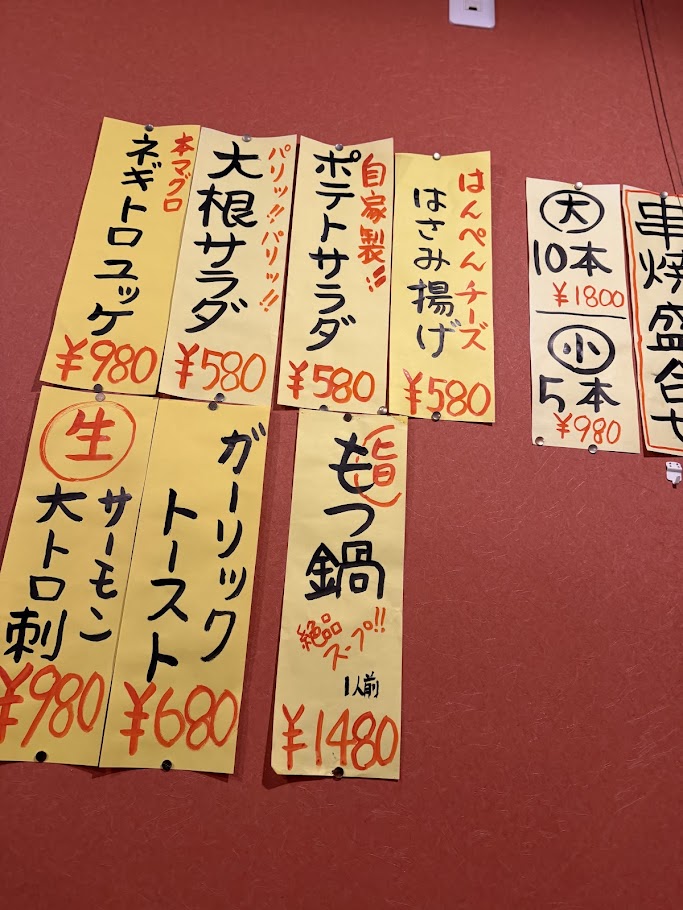 本マグロ
ネギトロユッケ
¥980
パリッ!!パリッ!!
大根サラダ
¥580
自家製!!
ポテトサラダ
¥580
はんぺんチーズ
はさみ揚げ
¥580
大
10本
¥1800
小
5本
¥980
串焼盛合せ
生
サーモン
大トロ刺
¥980
ガーリック
トースト
¥680
旨
もつ鍋
絶品
スープ!!
1人前
¥1480